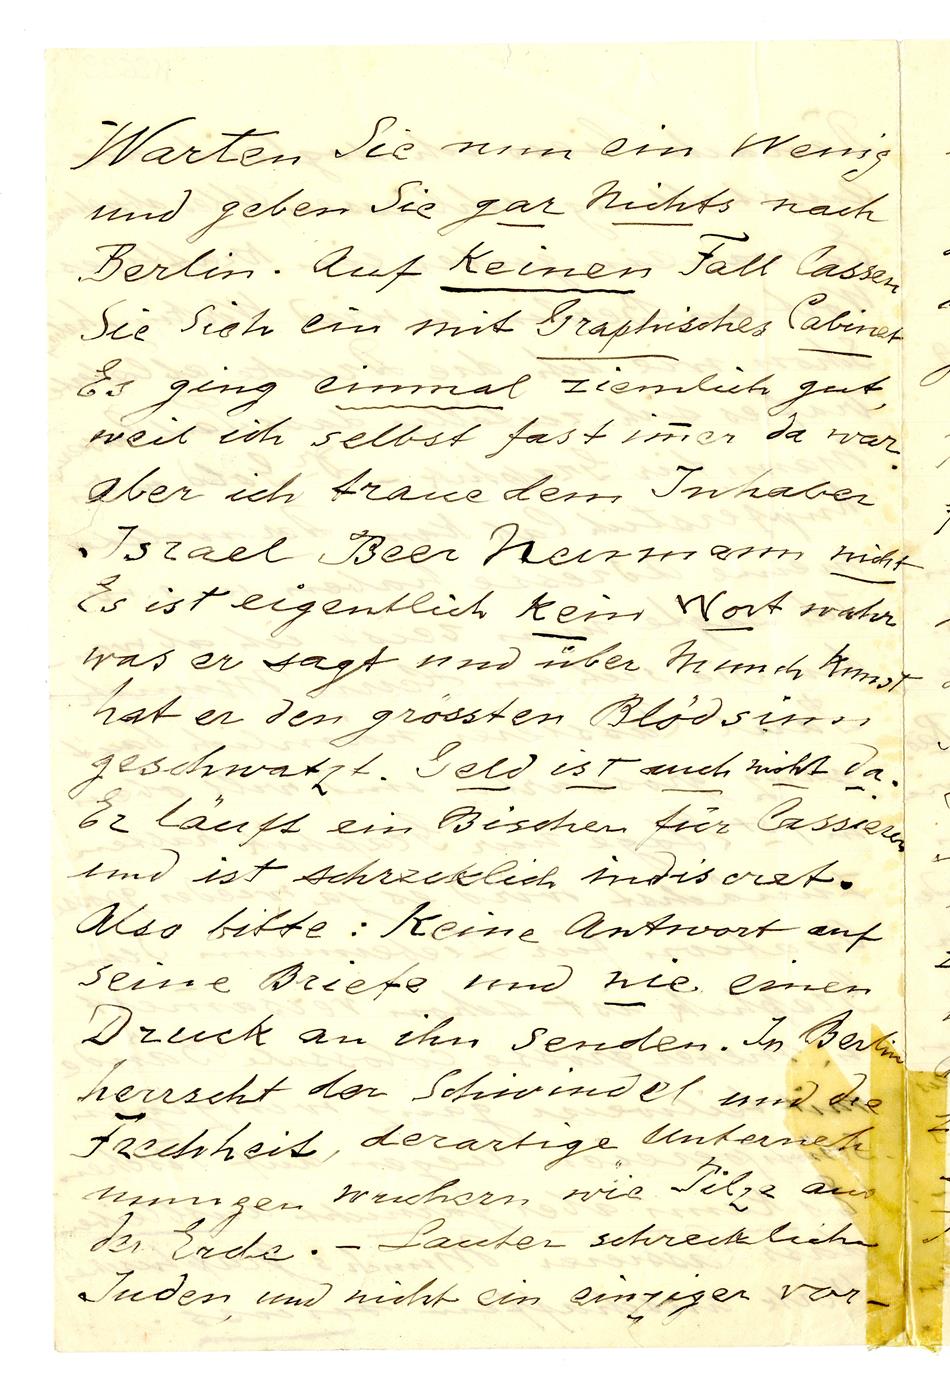 Warten Sie nun ein Wenig
und geben Sie gar Nichts nach
Berlin. Auf Keinen Fall lassen
Sie Sich ein mit Graphisches Cabinet
Es ging einmal ziemlich gut,
weil ich selbst fast im̅er da war.
aber ich traue dem Inhaber
Israel Beer Neumann nicht
Es ist eigentlich Kein Wort wahr
was er sagt und über Munch Kunst
hat er den grössten Blödsinn
geschwatzt. Geld ist auch nicht da.
Er läuft ein Bischen für Cassierer
und ist schrecklich indiscret.
Also bitte: Keine Antwort auf
seine Briefe und nie einen
Druck an ihn senden. In Berlin
herrscht der Schwindel und die
Frechheit, derartige Unterneh
mungen wuchern wie Pilze aus
der Erde. – Lauter schreckliche
Juden, und nicht ein einziger vor-